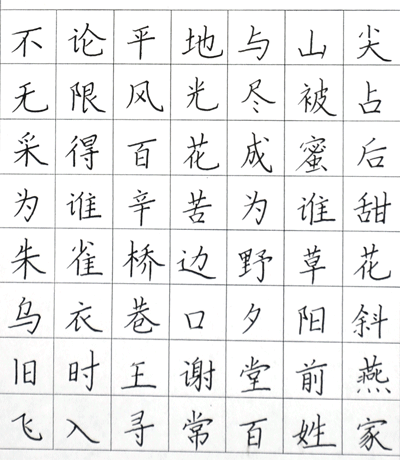 不论平地与山尖
无限风光尽被占
采得百花成蜜后
为谁辛苦为谁甜
朱雀桥边野草花
乌衣巷口夕阳斜
旧时王谢堂前燕
飞入寻常百姓家